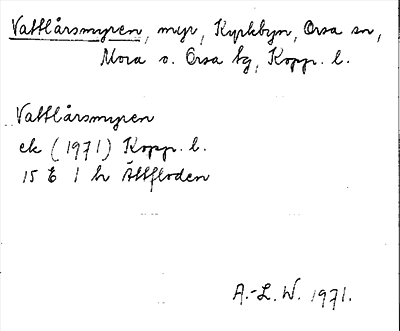 Vattlårsmyren, myr, Kyrkbyn, Orsa sn,
Mora o. Orsa tg, Kopp. l.
Vattlårsmyren
ek (1971) Kopp. l.
15 E 1 h Ättfloden
A.-L. W. 1971.